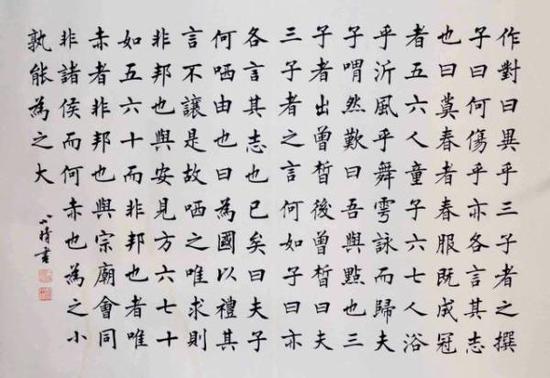 作對曰異乎三子者之撰
子曰何傷乎亦各言其志
也曰莫春者春服既成冠
者五六人童子六七人浴
乎沂風乎舞雩詠而歸夫
子喟然歎曰吾與點也三
子者出曾皙後曾皙曰夫
三子者之言何如子曰亦
各言其志也已矣曰夫子
何哂由也曰為國以禮其
言不讓是故哂之唯求則
非邦也與安見方六七十
如五六十而非邦也者唯
赤者非邦也與宗廟會同
非諸侯而何赤也為之小
孰能為之大